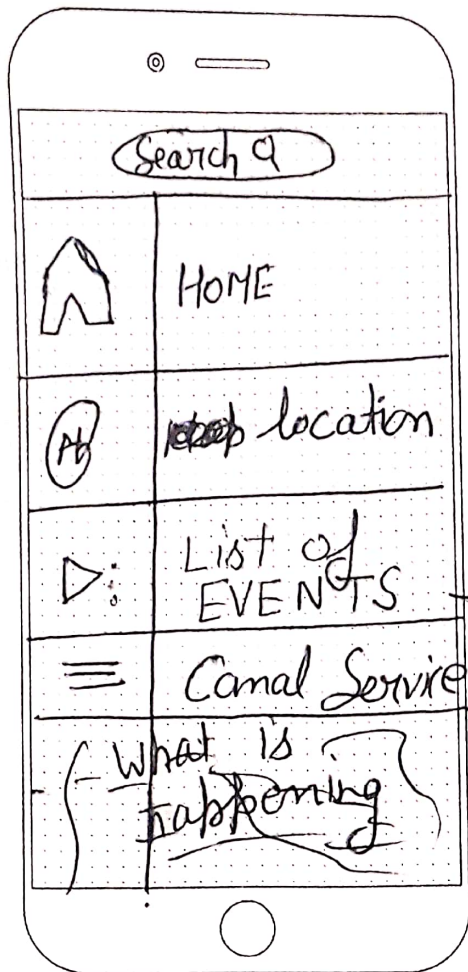 Search
HOME
location
List of
EVENTS
Canal Service
What is
happening